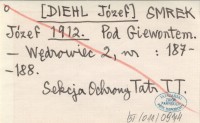 o [DIEHL Józef] SMREK
Józef 1912. Pod Giewontem.
– Wędrowiec 2, nr : 187-
-188.
Sekcja Ochrony Tatr T.T.